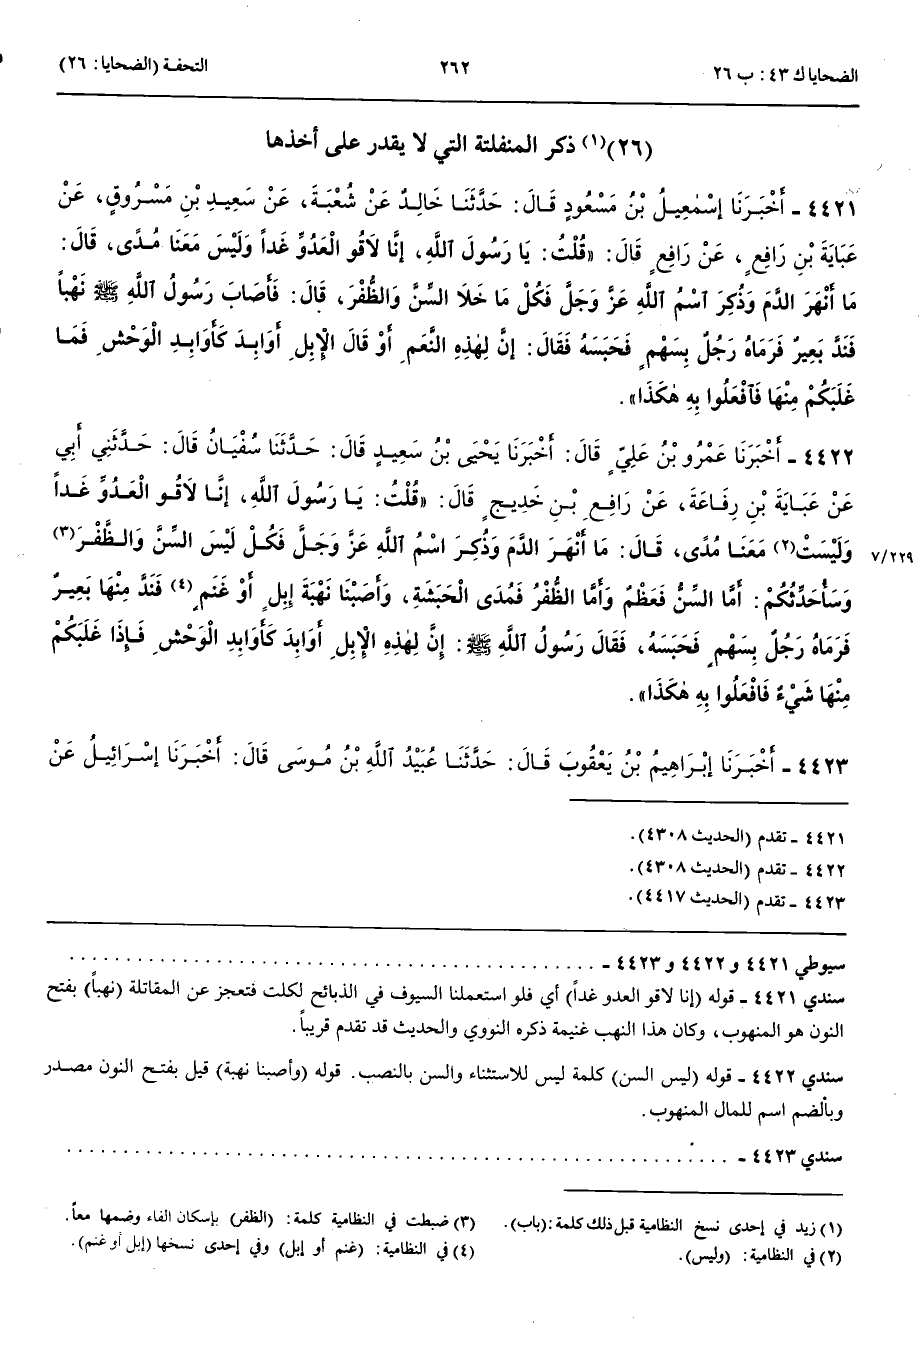 الضحايا ك ٤٣: ب ٢٦ ٢٦٢ التحفة (الضحايا: ٢٦)
(٢٦)(١) ذكر المنفلتة التي لا يقدر على أخذها
٤٤٢١ - أَخْبَرَنَا إِسْمٰعِيلُ بْنُ مَسْعُودٍ قَالَ: حَدَّثَنَا خَالِدٌ عَنْ شُعْبَةَ، عَنْ سَعِيدِ بْنِ مَسْرُوقٍ، عَنْ
عَبَايَةَ بْنِ رَافِعٍ، عَنْ رَافِعٍ قَالَ: «قُلْتُ: يَا رَسُولَ اللَّهِ، إِنَّا لَاقُو الْعَدُوِّ غَداً وَلَيْسَ مَعَنَا مُدًى، قَالَ:
مَا أَنْهَرَ الدَّمَ وَذُكِرَ اسْمُ اللَّهِ عَزَّ وَجَلَّ فَكُلْ مَا خَلَا السِّنَّ وَالظُّفْرَ، قَالَ: فَأَصَابَ رَسُولُ اللَّهِ ﷺ نَهْباً
فَنَدَّ بَعِيرٌ فَرَمَاهُ رَجُلٌ بِسَهْمٍ فَحَبَسَهُ فَقَالَ: إِنَّ لِهٰذِهِ النَّعَمِ أَوْ قَالَ الْإِبِلِ أَوَابِدَ كَأَوَابِدِ الْوَحْشِ فَمَا
غَلَبَكُمْ مِنْهَا فَافْعَلُوا بِهِ هٰكَذَا».
٤٤٢٢ - أَخْبَرَنَا عَمْرُو بْنُ عَلِيٍّ قَالَ: أَخْبَرَنَا يَحْيَى بْنُ سَعِيدٍ قَالَ: حَدَّثَنَا سُفْيَانُ قَالَ: حَدَّثَنِي أَبِي
عَنْ عَبَايَةَ بْنِ رِفَاعَةَ، عَنْ رَافِعِ بْنِ خَدِيجٍ قَالَ: «قُلْتُ: يَا رَسُولَ اللَّهِ، إِنَّا لَاقُو الْعَدُوِّ غَداً
وَلَيْسَتْ(٢) مَعَنَا مُدًى، قَالَ: مَا أَنْهَرَ الدَّمَ وَذُكِرَ اسْمُ اللَّهِ عَزَّ وَجَلَّ فَكُلْ لَيْسَ السِّنَّ وَالظُّفْرَ(٣) ٧/٢٢٩
وَسَأُحَدِّثُكُمْ: أَمَّا السِّنُّ فَعَظْمٌ وَأَمَّا الظُّفْرُ فَمُدَى الْحَبَشَةِ، وَأَصَبْنَا نَهْبَةَ إِبِلٍ أَوْ غَنَمٍ(٤) فَنَدَّ مِنْهَا بَعِيرٌ
فَرَمَاهُ رَجُلٌ بِسَهْمٍ فَحَبَسَهُ، فَقَالَ رَسُولُ اللَّهِ ﷺ: إِنَّ لِهٰذِهِ الْإِبِلِ أَوَابِدَ كَأَوَابِدِ الْوَحْشِ فَإِذَا غَلَبَكُمْ
مِنْهَا شَيْءٌ فَافْعَلُوا بِهِ هٰكَذَا».
٤٤٢٣ - أَخْبَرَنَا إِبْرَاهِيمُ بْنُ يَعْقُوبَ قَالَ: حَدَّثَنَا عُبَيْدُ اللَّهِ بْنُ مُوسَى قَالَ: أَخْبَرَنَا إِسْرَائِيلُ عَنْ
٤٤٢١ - تقدم (الحديث ٤٣٠٨).
٤٤٢٢ - تقدم (الحديث ٤٣٠٨).
٤٤٢٣ - تقدم (الحديث ٤٤١٧).
سيوطي ٤٤٢١ و ٤٤٢٢ و ٤٤٢٣ - . . . . . . . . . . . . . . . . . . . .
سندي ٤٤٢١ - قوله (إنا لاقو العدو غداً) أي فلو استعملنا السيوف في الذبائح لكلت فتعجز عن المقاتلة (نهباً) بفتح
النون هو المنهوب، وكان هذا النهب غنيمة ذكره النووي والحديث قد تقدم قريباً.
سندي ٤٤٢٢ - قوله (ليس السن) كلمة ليس للاستثناء والسن بالنصب. قوله (وأصبنا نهبة) قيل بفتح النون مصدر
وبالضم اسم للمال المنهوب.
سندي ٤٤٢٣ - . . . . . . . . . . . . . . . . . . . .
(١) زيد في إحدى نسخ النظامية قبل ذلك كلمة: (باب). (٣) ضبطت في النظامية كلمة: (الظفر) بإسكان الفاء وضمها معاً.
(٢) في النظامية: (وليس). (٤) في النظامية: (غنم أو إبل) وفي إحدى نسخها (إبل أو غنم).